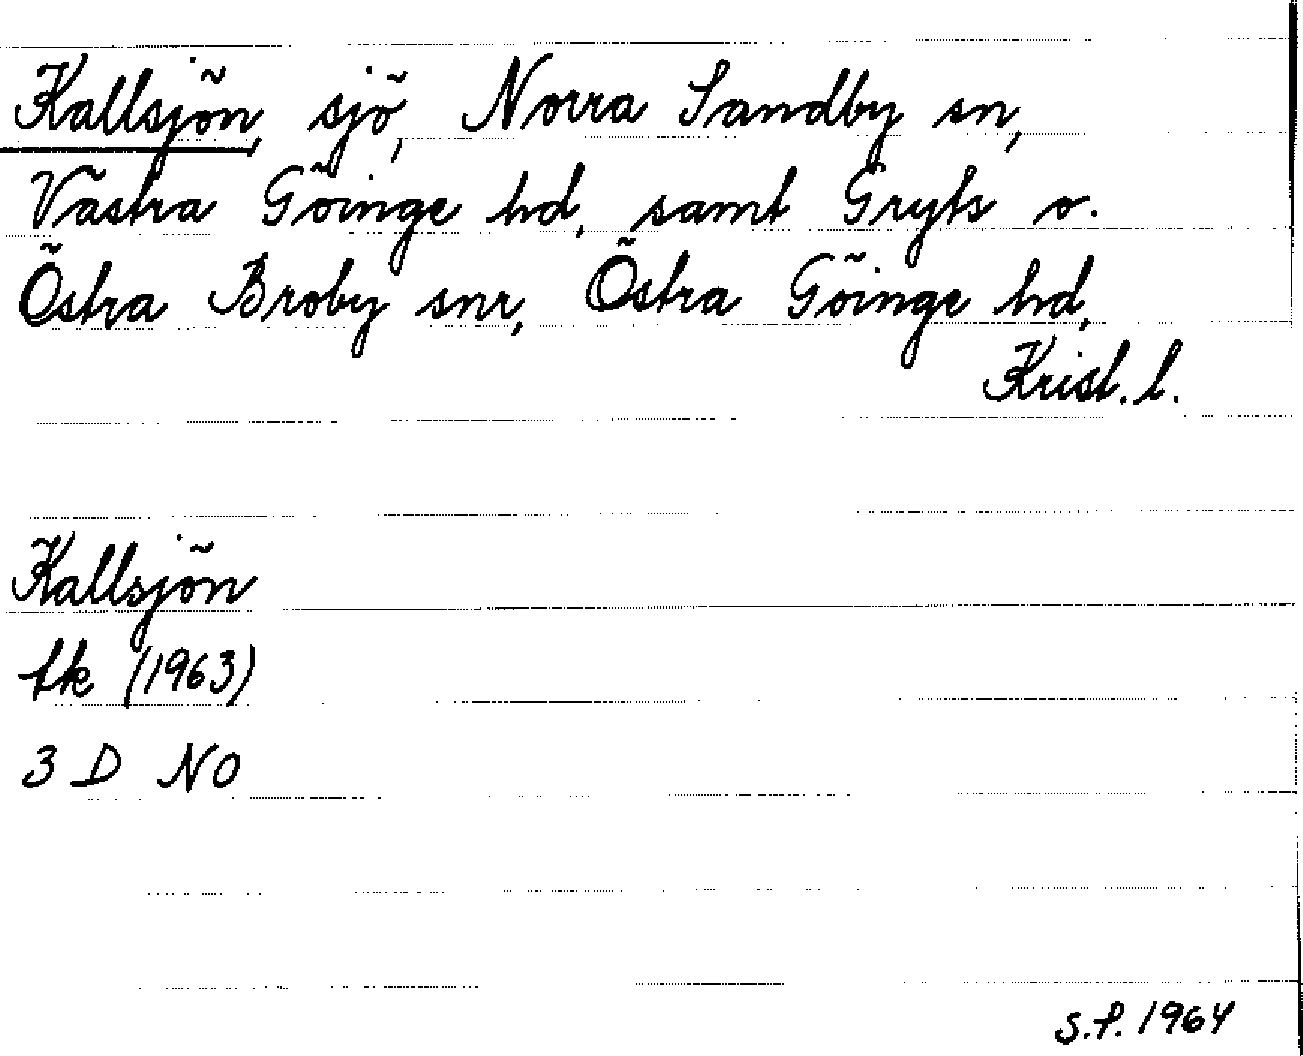 Kallsjön, sjö, Norra Sandby sn,
Västra Göinge hd, samt Gryts o.
Östra Broby snr, Östra Göinge hd,
Krist. l.
Kallsjön
tk (1963)
3 D NO
S.F. 1964